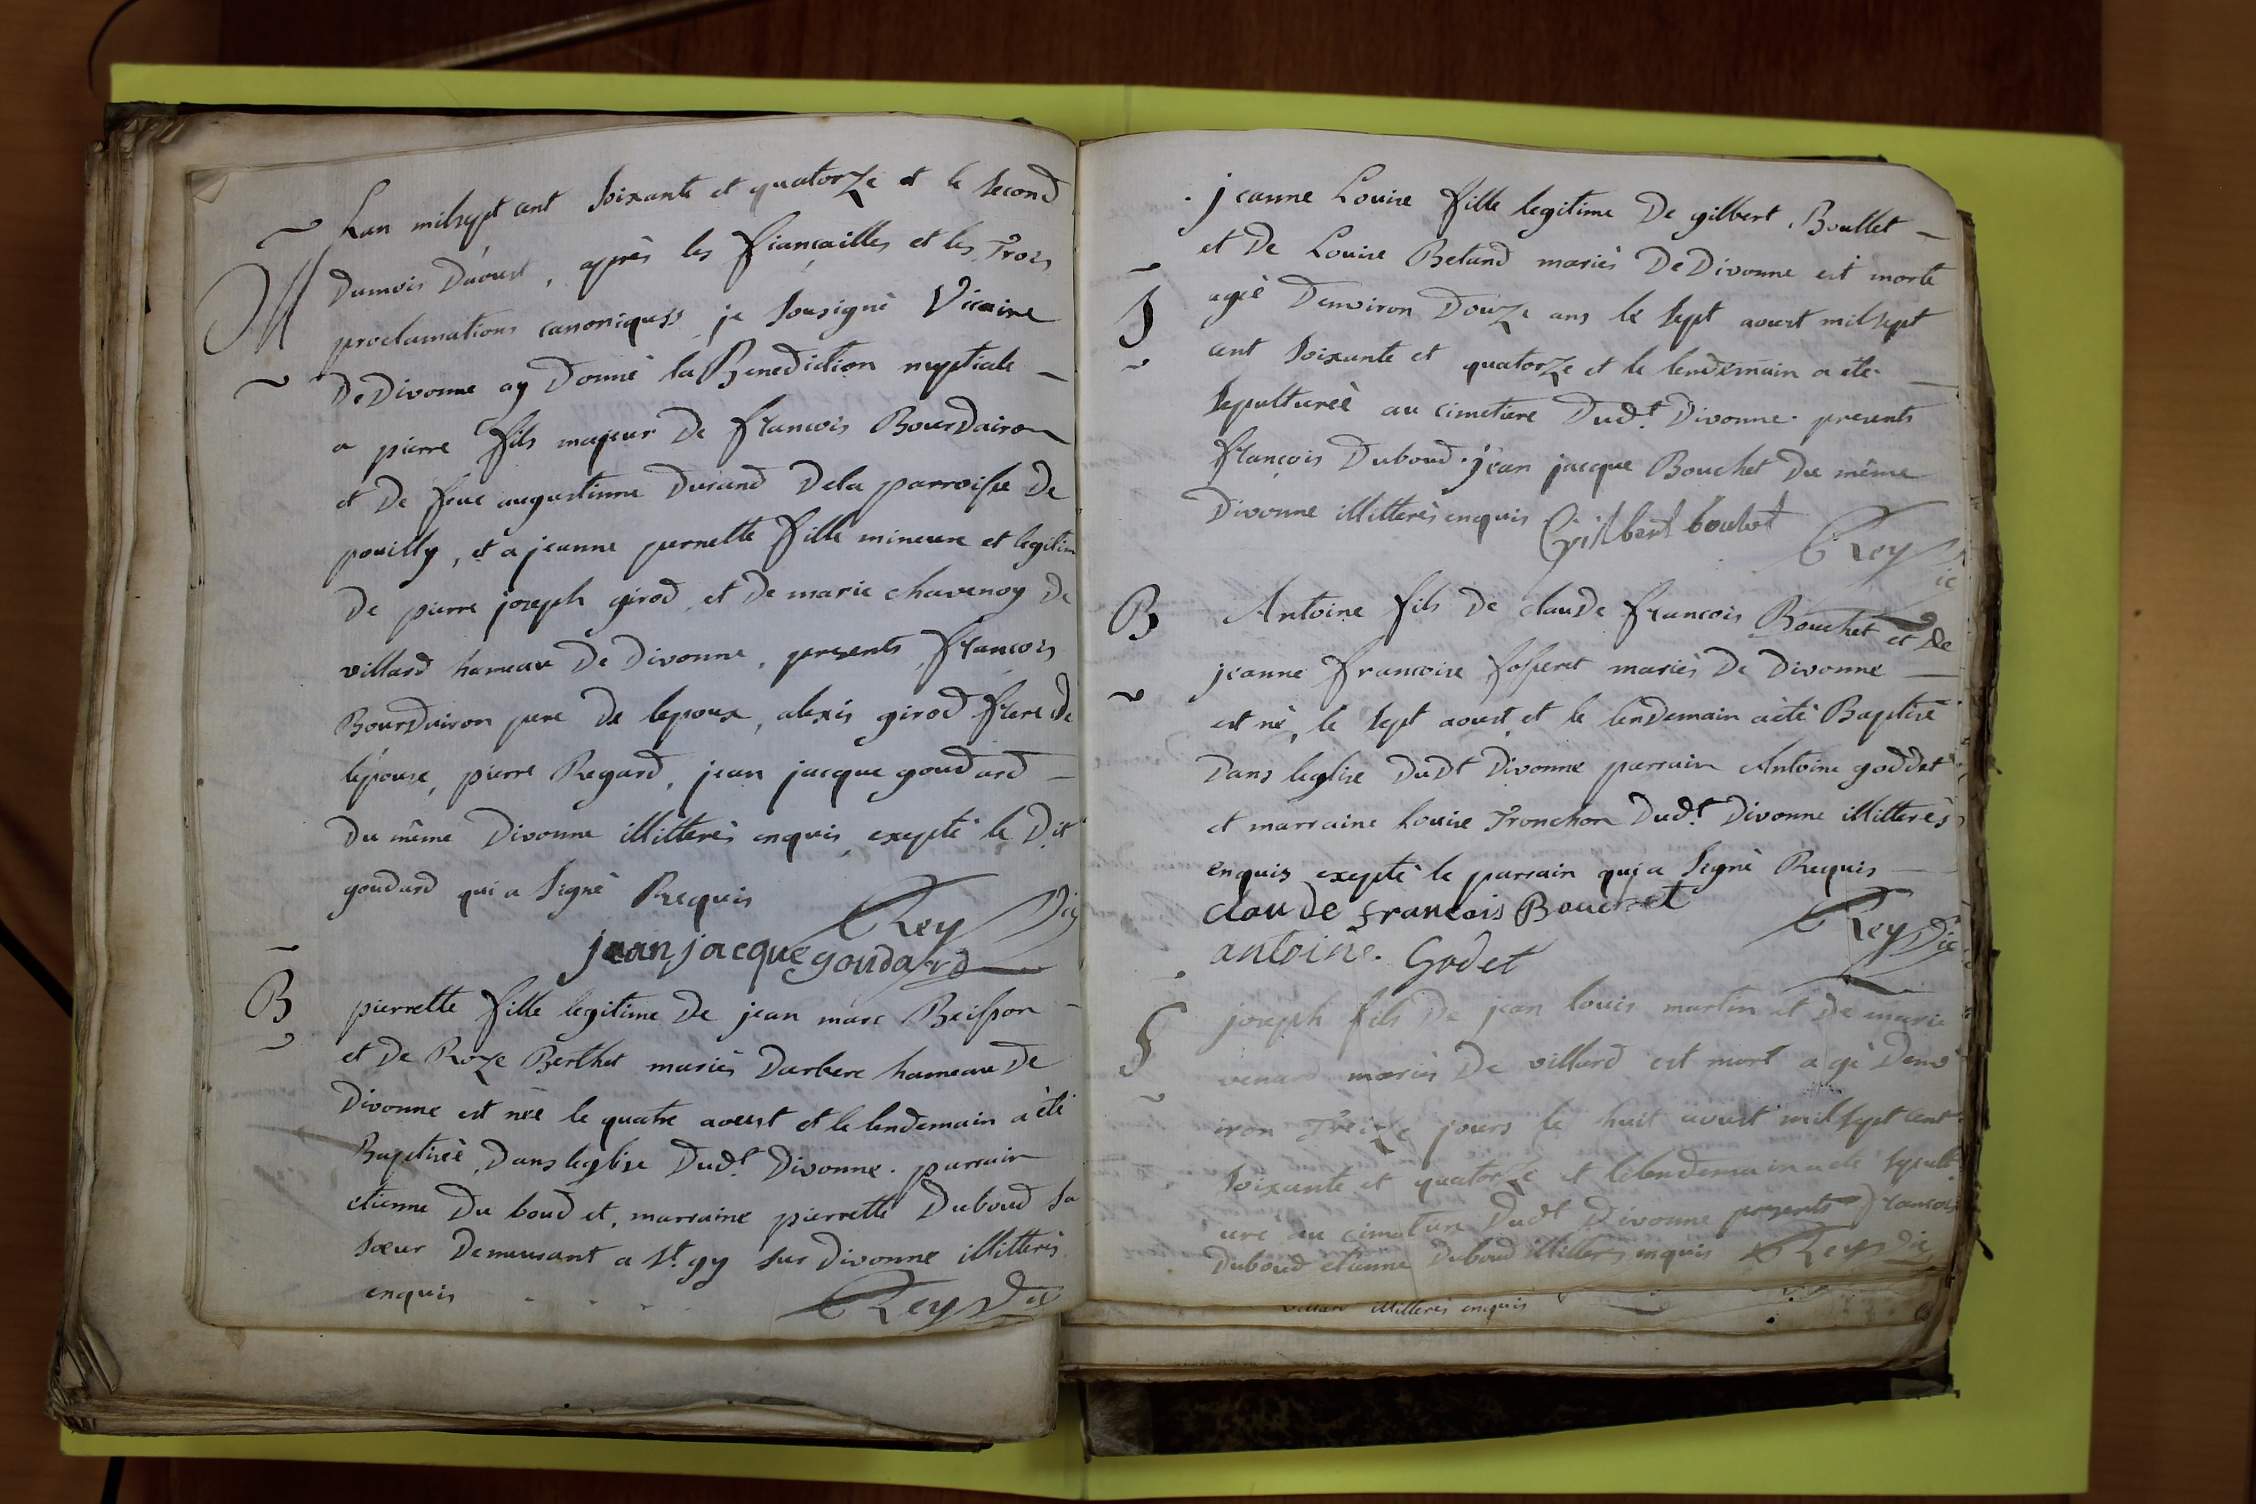 M
Lan milsept cent soixante et quatorze et le second
dumois daoust, après les fiançailles et les trois
proclamations canoniques je sousigné Vicaire
De Divonne ay donné la Benediction nuptiale
a pierre fils majeur de francois Bourdairon
et de feue augustinne durand Dela parroisse de
pouilly, et a jeanne pernette fille mineure et legitim
de pierre joseph girod et de marie chavenoy de
villard hameau de divonne, presents, francois
Bourdairon pere de lepoux, alexis girod frere de
lépouse, pierre Regard, jean jacque goudard
du même Divonne illitterès enquis, exepté le dit
goudard qui a signé Requis
Rey Vic
jean jacque goudard
B
pierrette fille legitime de jean marc Beisson
et de Roze Berthet mariès darbere hameau de
Divonne est née le quatre aoust et le lendemain a été
Baptisée, dans leglise dudt Divonne. parrain
etienne du boud et, marraine pierrette Duboud sa
sœur demeurant a st gy sur divonne illitterès
enquis
Rey Vic
jeanne Louise fille legitime de gilbert Boullet
et de Louise Betand mariès De Divonne est morte
S
agée denviron douze ans le sept aoust milsept
cent soixante et quatorze et le lendemain a été
sepulturée au cimetiere dudt Divonne. presents
françois Duboud. jean jacque Bouchet du même
Divonne illitterès enquis Gilbert boulet
Rey Vic
B
Antoine fils de claude francois Bouchet et de
jeanne francoise fosseret mariès de Divonne
est né, le sept aoust, et le lendemain a été Baptisé
dans leglise dudt Divonne parrain Antoine goddet
et marraine Louise Tronchon dudt Divonne illitterès
enquis exepté le parrain qui a signé Requis
claude francois Bouchet
Rey Vic
antoine. Godet
S
joseph fils de jean louis martin et de marie
venard mariès de villard est mort agé denv
iron treize jours le huit aoust milsept cent
soixante et quatorze et le lendemain a ete sepult
uré au cimetiere dudt Divonne presents francois
Duboud etienne Duboud illitterès enquis Rey Vic
illitterès enquis